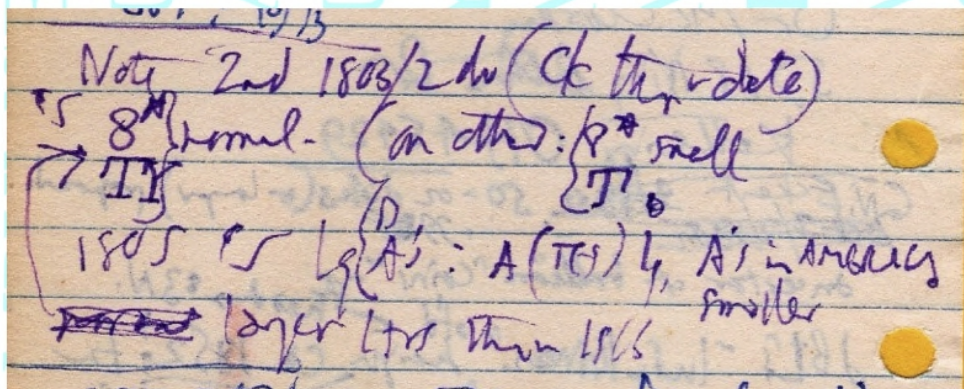 Note 2nd 1803/2 du (Ck this date)
is 8* } normal - (on other: { 8* small
TT } { T.
1805 is Lg { D A's : A(TES) Lg, A's in AMERICA
smaller
larger ltrs than